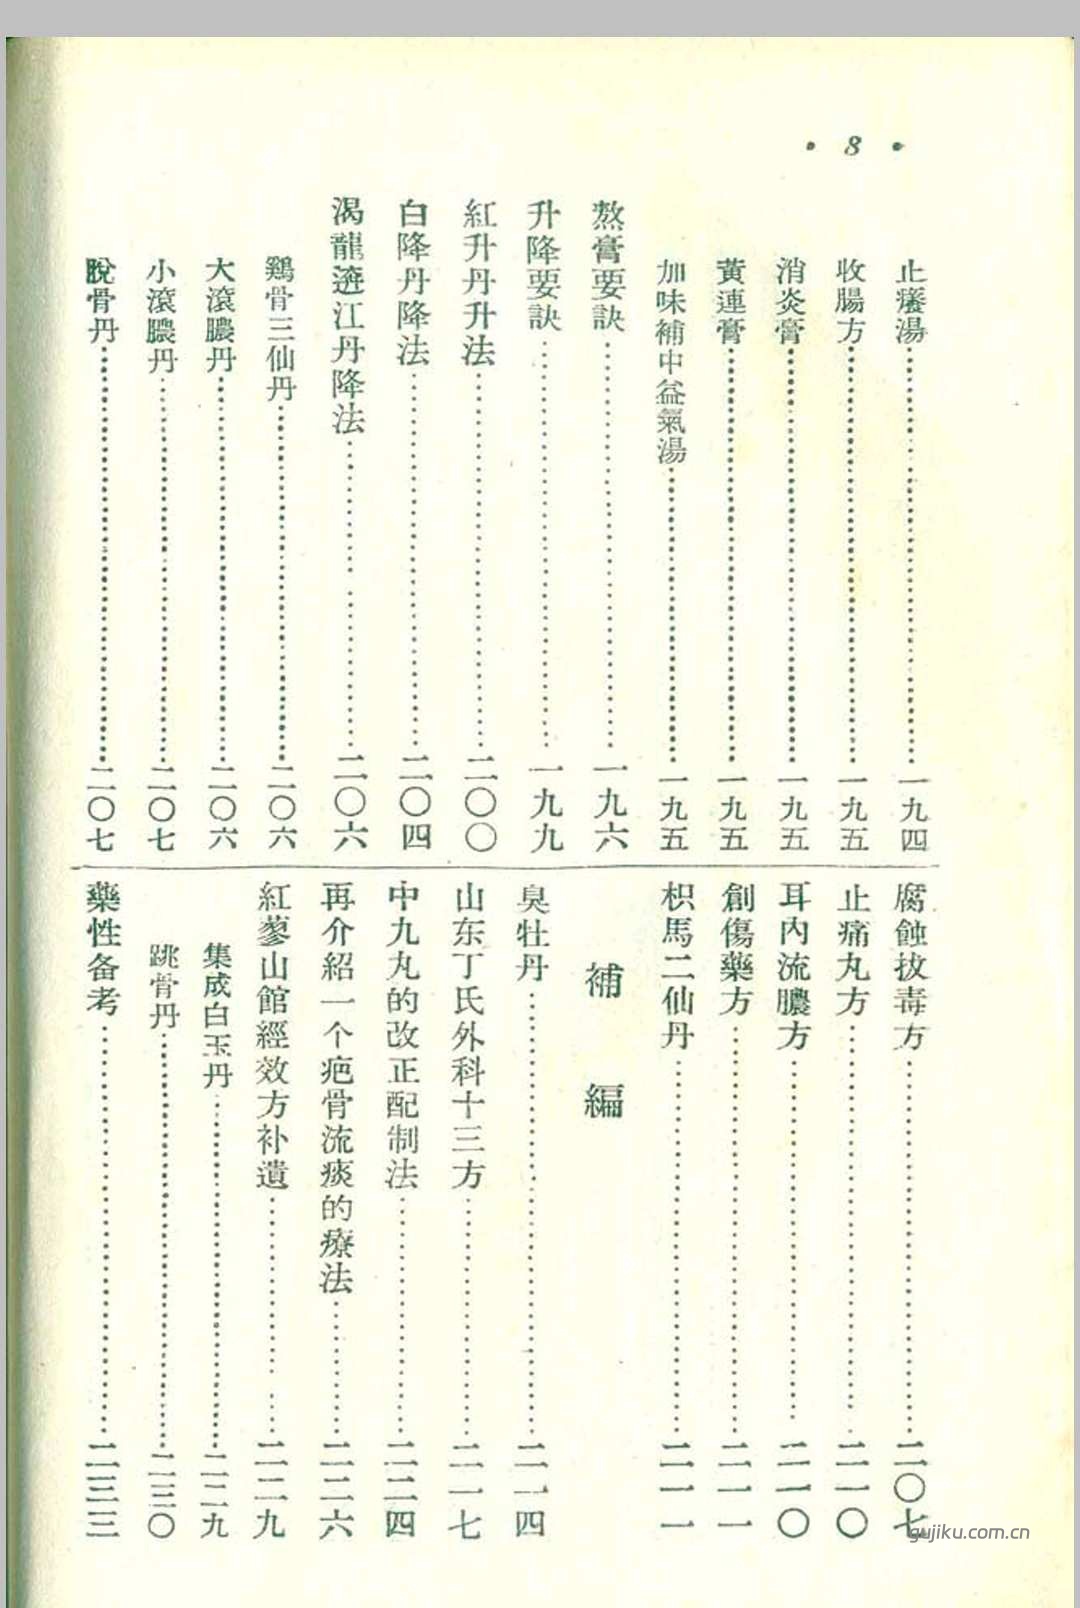 · 8 ·
止癢湯 一九四
收腸方 一九五
消炎膏 一九五
黃連膏 一九五
加味補中益氣湯 一九五
熬膏要訣 一九六
升降要訣 一九九
紅升丹升法 二〇〇
白降丹降法 二〇四
渴龍遊江丹降法 二〇六
鷄骨三仙丹 二〇六
大滾膿丹 二〇六
小滾膿丹 二〇七
脫骨丹 二〇七
腐蝕拔毒方 二〇七
止痛丸方 二一〇
耳內流膿方 二一〇
創傷藥方 二一一
枳馬二仙丹 二一一
補編
臭牡丹 二一四
山东丁氏外科十三方 二一七
中九丸的改正配制法 二二四
再介紹一个疤骨流痰的療法 二二六
紅蓼山館經效方补遺 二二九
集成白玉丹 二二九
跳骨丹 二三〇
藥性备考 二三三
gujiku.com.cn